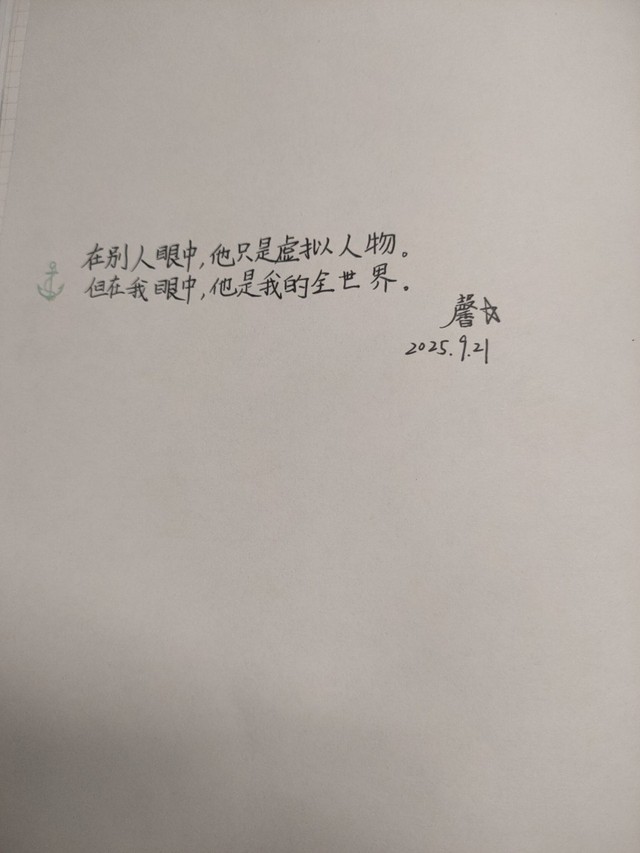 在别人眼中,他只是虚拟人物。
但在我眼中,他是我的全世界。
馨
2025.9.21